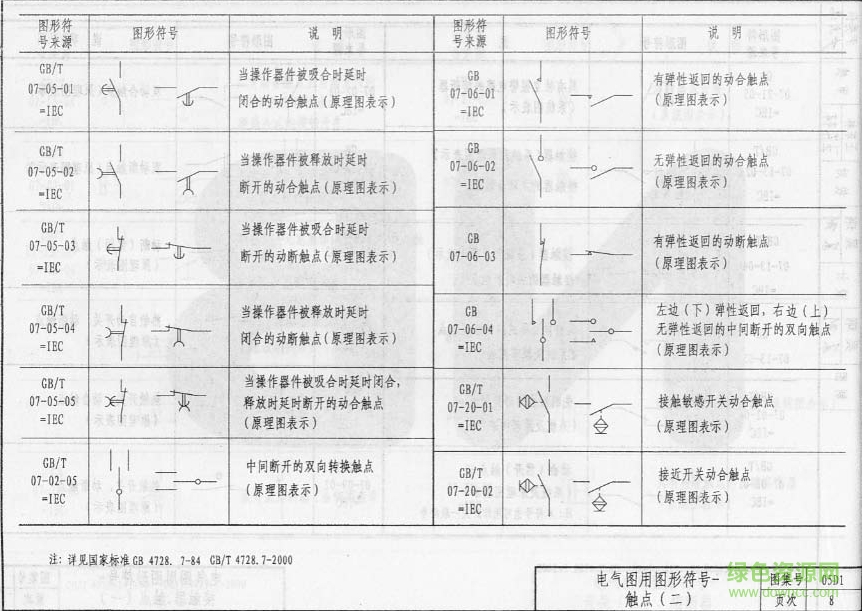 图形符
号来源
图形符号
说 明
GB/T
07-05-01
=IEC
当操作器件被吸合时延时
闭合的动合触点(原理图表示)
GB/T
07-05-02
=IEC
当操作器件被释放时延时
断开的动合触点(原理图表示)
GB/T
07-05-03
=IEC
当操作器件被吸合时延时
断开的动断触点(原理图表示)
GB/T
07-05-04
=IEC
当操作器件被释放时延时
闭合的动断触点(原理图表示)
GB/T
07-05-05
=IEC
当操作器件被吸合时延时闭合,
释放时延时断开的动合触点
(原理图表示)
GB/T
07-02-05
=IEC
中间断开的双向转换触点
(原理图表示)
图形符
号来源
图形符号
说 明
GB
07-06-01
=IEC
有弹性返回的动合触点
(原理图表示)
GB
07-06-02
=IEC
无弹性返回的动合触点
(原理图表示)
GB
07-06-03
有弹性返回的动断触点
(原理图表示)
GB
07-06-04
=IEC
左边(下)弹性返回,右边(上)
无弹性返回的中间断开的双向触点
(原理图表示)
GB/T
07-20-01
=IEC
接触敏感开关动合触点
(原理图表示)
GB/T
07-20-02
=IEC
接近开关动合触点
(原理图表示)
注: 详见国家标准GB 4728. 7-84 GB/T 4728.7-2000
电气图用图形符号-
触点(二)
图集号
05D1
页次
8
绿色资源网
www.downcc.com